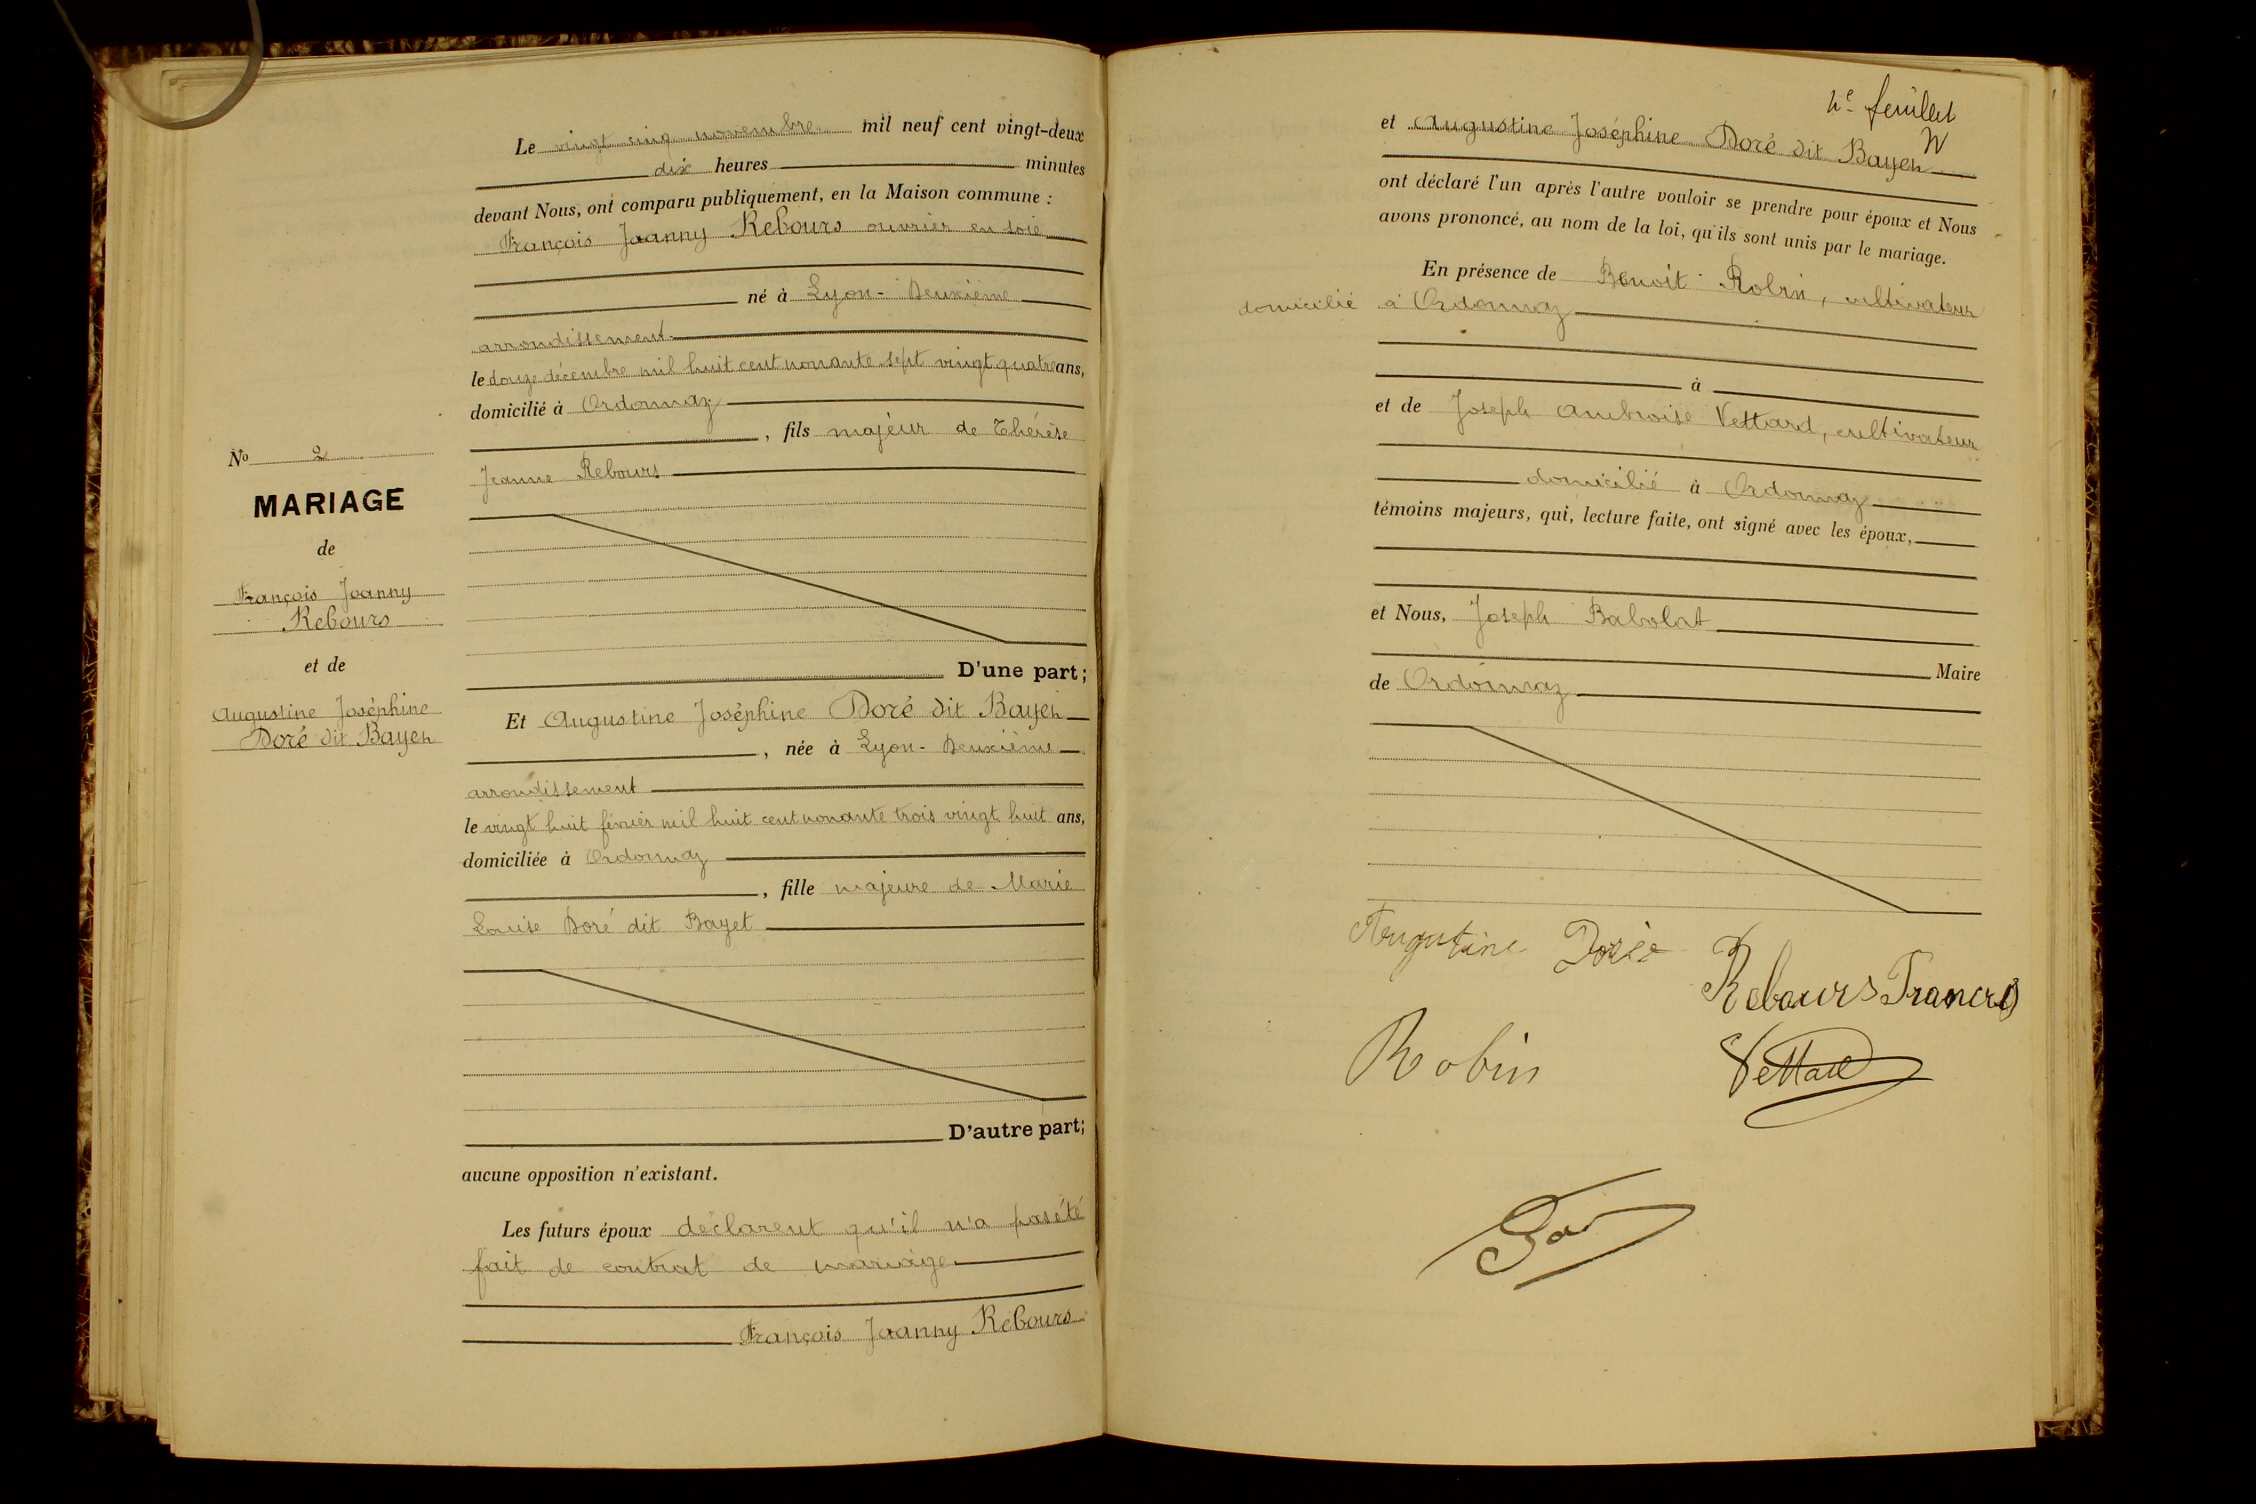 Le vingt cinq novembre mil neuf cent vingt-deux
dix heures minutes
devant Nous, ont comparu publiquement, en la Maison commune :
François Joanny Rebours ouvrier en soie
né à Lyon - Deuxième
arrondissement
le douze décembre mil huit cent nonante sept vingt quatre ans,
domicilié à Ordonnaz
, fils majeur de Thérèse
Jeanne Rebours
No 2
MARIAGE
de
François Joanny
Rebours
et de
Augustine Joséphine
Doré dit Bayen
D'une part ;
Et Augustine Joséphine Doré dit Bayen
, née à Lyon - Deuxième
arrondissement
le vingt huit février mil huit cent nonante trois vingt huit ans,
domiciliée à Ordonnaz
, fille majeure de Marie
Louise Doré dit Bayet
D'autre part ;
aucune opposition n'existant.
Les futurs époux déclarent qu'il n'a pas été
fait de contrat de mariage
François Joanny Rebours
feuillet
et Augustine Joséphine Doré dit Bayen
ont déclaré l'un après l'autre vouloir se prendre pour époux et Nous
avons prononcé, au nom de la loi, qu'ils sont unis par le mariage.
En présence de Benoit Robin, cultivateur
domicilié à Ordonnaz
à
et de Joseph Ambroise Vettard, cultivateur
domicilié à Ordonnaz
témoins majeurs, qui, lecture faite, ont signé avec les époux,
et Nous, Joseph Babolat
Maire
de Ordonnaz
Augustine Dorée
Rebours Francis
Robin
Vettard